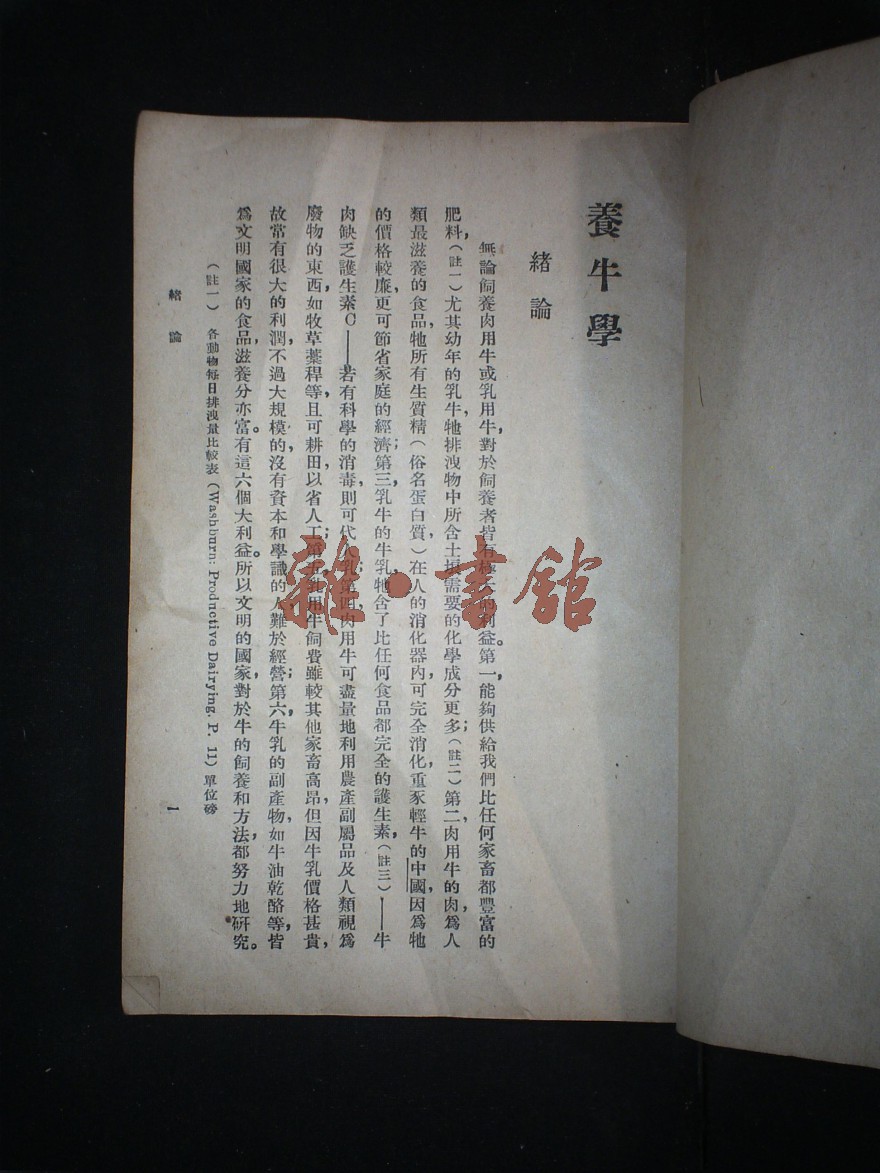 養牛學
緒論
無論飼養肉用牛或乳用牛,對於飼養者皆有極大的利益。第一,能夠供給我們比任何家畜都豐富的
肥料,(註一)尤其幼年的乳牛,牠排洩物中所含土壤需要的化學成分更多;(註二)第二,肉用牛的肉,爲人
類最滋養的食品,牠所有生質精(俗名蛋白質)在人的消化器內,可完全消化,重豕輕牛的中國,因爲牠
的價格較廉,更可節省家庭的經濟;第三,乳牛的牛乳,牠含了比任何食品都完全的護生素,(註三)——牛
肉缺乏護生素C——若有科學的消毒,則可代人乳;第四,肉用牛可盡量地利用農產副屬品及人類視爲
廢物的東西,如牧草藁稈等,且可耕田以省人工;第五,乳用牛飼費雖較其他家畜高昂,但因牛乳價格甚貴,
故常有很大的利潤,不過大規模的,沒有資本和學識的人,難於經營;第六,牛乳的副產物,如牛油乾酪等,皆
爲文明國家的食品,滋養分亦富。有這六個大利益。所以文明的國家,對於牛的飼養和方法,都努力地研究。
(註一) 各動物每日排洩量比較表(Washburn: Productive Dairying, P. 11)單位磅
緒論
1
雜·書館